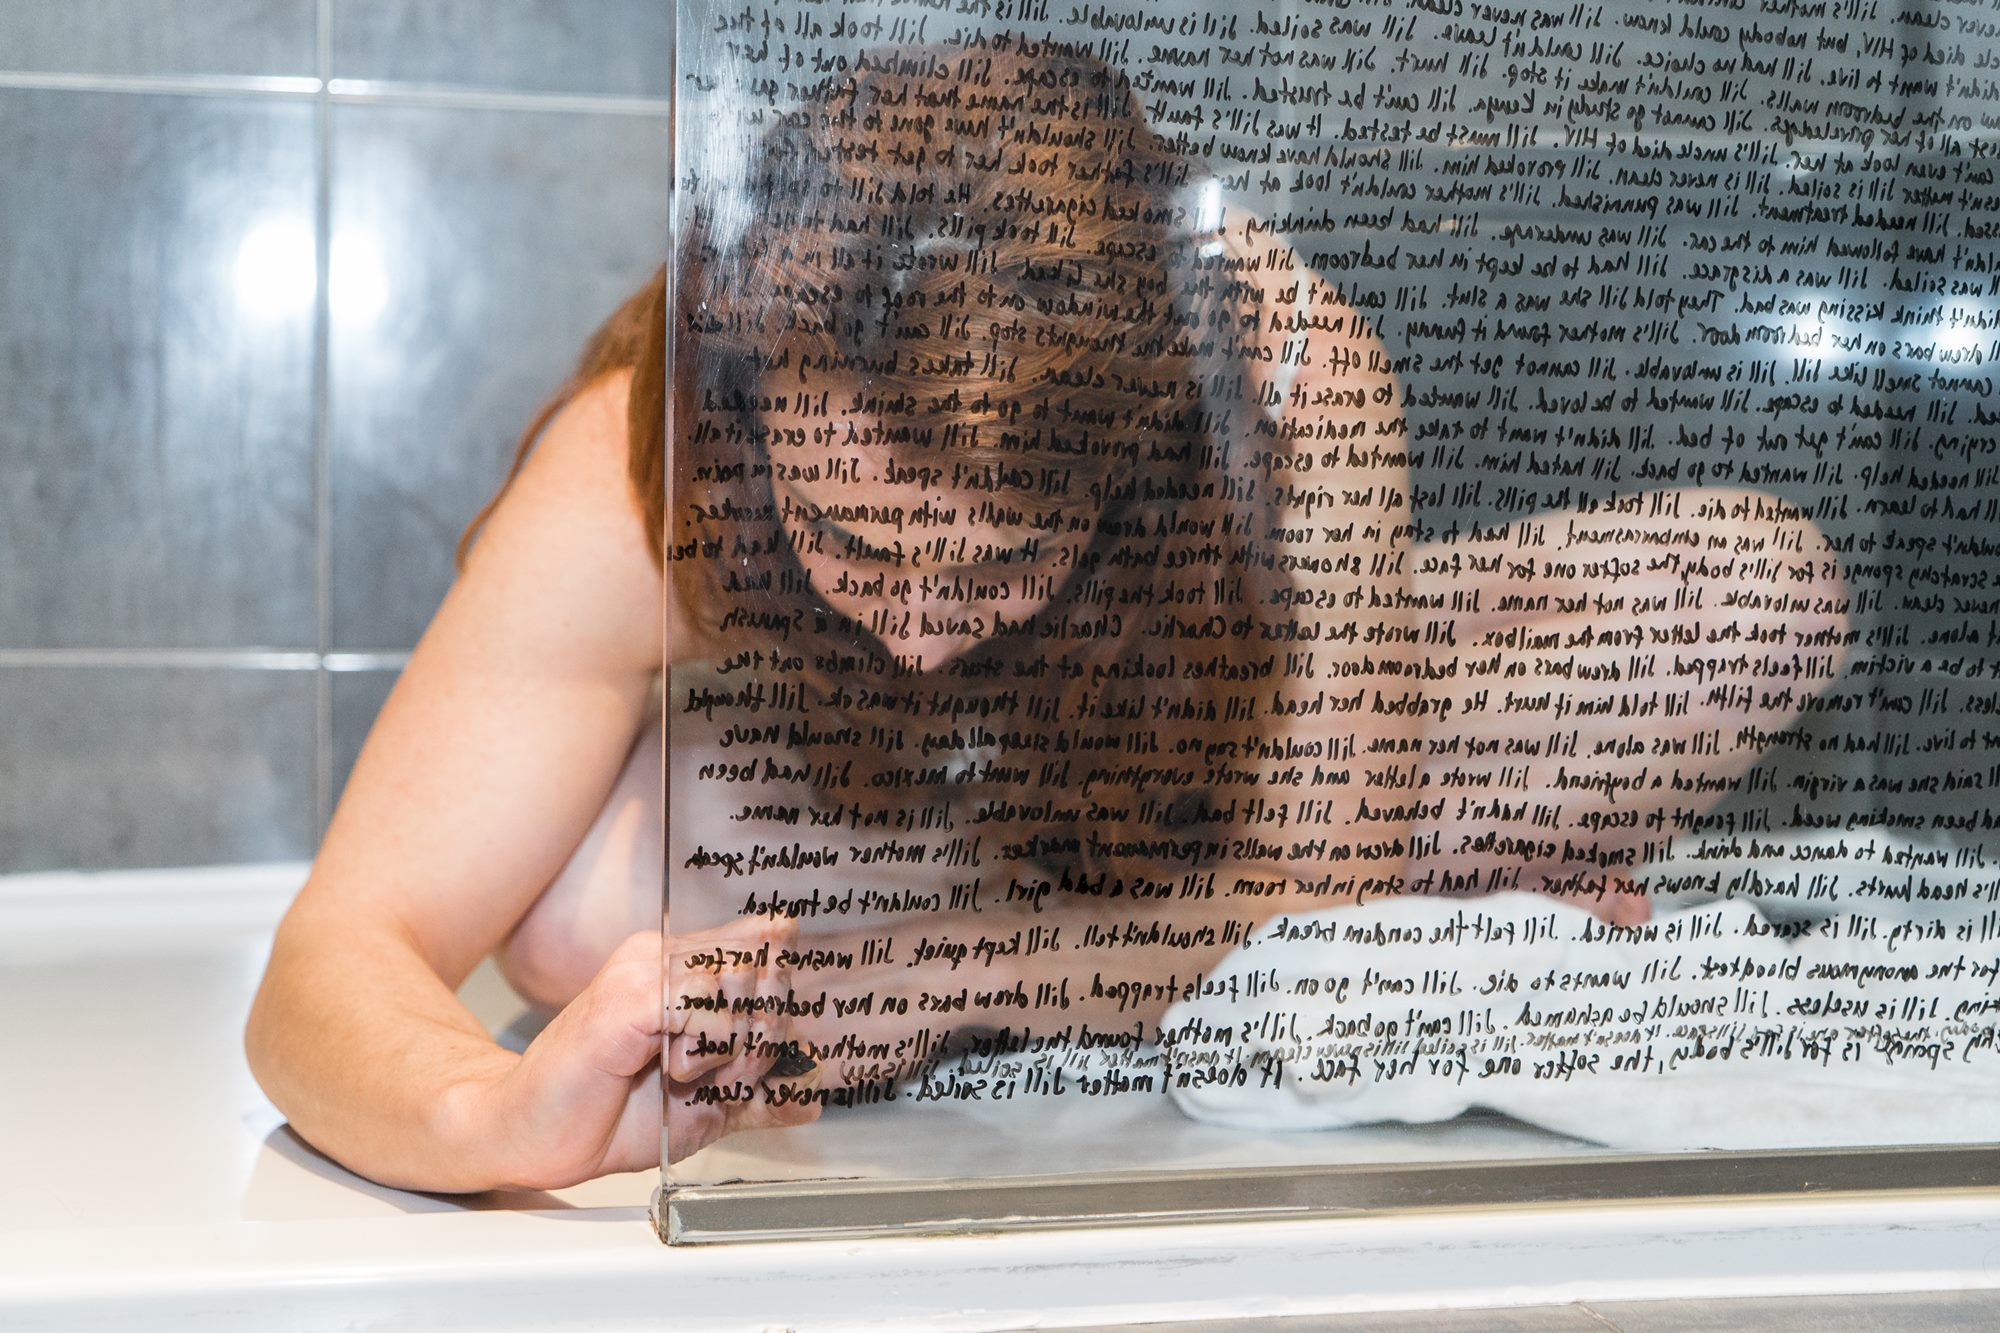 Jill's mother
never clean. Jill was never clean. Jill is the name
died of HIV, but nobody could know. Jill was soiled. Jill is unlovable.
didn't want to live. Jill had no choice. Jill couldn't leave. Jill wanted to die. Jill took all of the
on the bedroom walls. Jill couldn't make it stop. Jill hurt. Jill was not her name. Jill climbed out of her
lost all of her priveledges. Jill cannot go study in Kenya. Jill can't be trusted. Jill wanted to escape. Jill is the name that her father gave
can't even look at her. Jill's uncle died of HIV. Jill must be tested. It was Jill's fault. Jill shouldn't have gone to the car
doesn't matter Jill is soiled. Jill is never clean. Jill provoked him. Jill should have know better. Jill's father took her to get tested
Jill needed treatment. Jill was punnished. Jill's mother couldn't look at her. Jill smoked cigarettes. He told Jill
shouldn't have followed him to the car. Jill was underage. Jill had been drinking. Jill took pills. Jill had to
was soiled. Jill was a disgrace. Jill had to be kept in her bedroom. Jill wanted to escape. Jill wrote it all in a
didn't think kissing was bad. They told Jill she was a slut. Jill couldn't be with the boy she liked.
drew bars on her bedroom door. Jill's mother found it funny. Jill needed to go out the window on to the roof to escape.
cannot smell like Jill. Jill is unlovable. Jill cannot get the smell off. Jill can't make the thoughts stop. Jill can't go back.
Jill needed to escape. Jill wanted to be loved. Jill wanted to erase it all. Jill is never clean. Jill takes burning hot
crying. Jill can't get out of bed. Jill didn't want to take the medication. Jill didn't want to go to the shrink. Jill needed
Jill needed help. Jill wanted to go back. Jill hated him. Jill wanted to escape. Jill had provoked him. Jill wanted to erase it all.
Jill had to learn. Jill wanted to die. Jill took all the pills. Jill lost all her rights. Jill needed help. Jill couldn't speak. Jill was in pain.
wouldn't speak to her. Jill was an embarrasment. Jill had to stay in her room. Jill would draw on the walls with permanent marker.
scratchy sponge is for Jill's body, the softer one for her face. Jill showers with three bath gels. It was Jill's fault. Jill had to be
never clean. Jill was unlovable. Jill was not her name. Jill wanted to escape. Jill took the pills. Jill couldn't go back. Jill had
alone. Jill's mother took the letter from the mailbox. Jill wrote the letter to Charlie. Charlie had saved Jill in a Spanish
to be a victim. Jill feels trapped. Jill drew bars on her bedroom door. Jill breathes looking at the stars. Jill climbs out the
Jill can't remove the filth. Jill told him it hurt. He grabbed her head. Jill didn't like it. Jill thought it was ok. Jill thought
to live. Jill had no strength. Jill was alone. Jill was not her name. Jill couldn't say no. Jill would sleep all day. Jill should have
said she was a virgin. Jill wanted a boyfriend. Jill wrote a letter and she wrote everything. Jill went to mexico. Jill had been
had been smoking weed. Jill fought to escape. Jill hadn't behaved. Jill felt bad. Jill was unlovable. Jill is not her name.
Jill wanted to dance and drink. Jill smoked cigarettes. Jill drew on the walls in permanent marker. Jill's mother wouldn't speak
Jill's head hurts. Jill hardly knows her father. Jill had to stay in her room. Jill was a bad girl. Jill couldn't be trusted.
Jill is dirty. Jill is scared. Jill is worried. Jill felt the condom break. Jill shouldn't tell. Jill kept quiet. Jill washes her face
for the anonymous blood test. Jill wants to die. Jill can't go on. Jill feels trapped. Jill drew bars on her bedroom door.
Jill is useless. Jill should be ashamed. Jill can't go back. Jill's mother found the letter. Jill's mother can't look
the softer one is for Jill's face. It doesn't matter. Jill is soiled. Jill is never clean. It doesn't matter Jill is soiled. Jill is never
sponge is for Jill's body, the softer one for her face. It doesn't matter Jill is soiled. Jill is never clean.